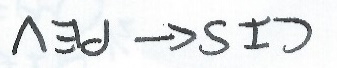 CIS ← PEV